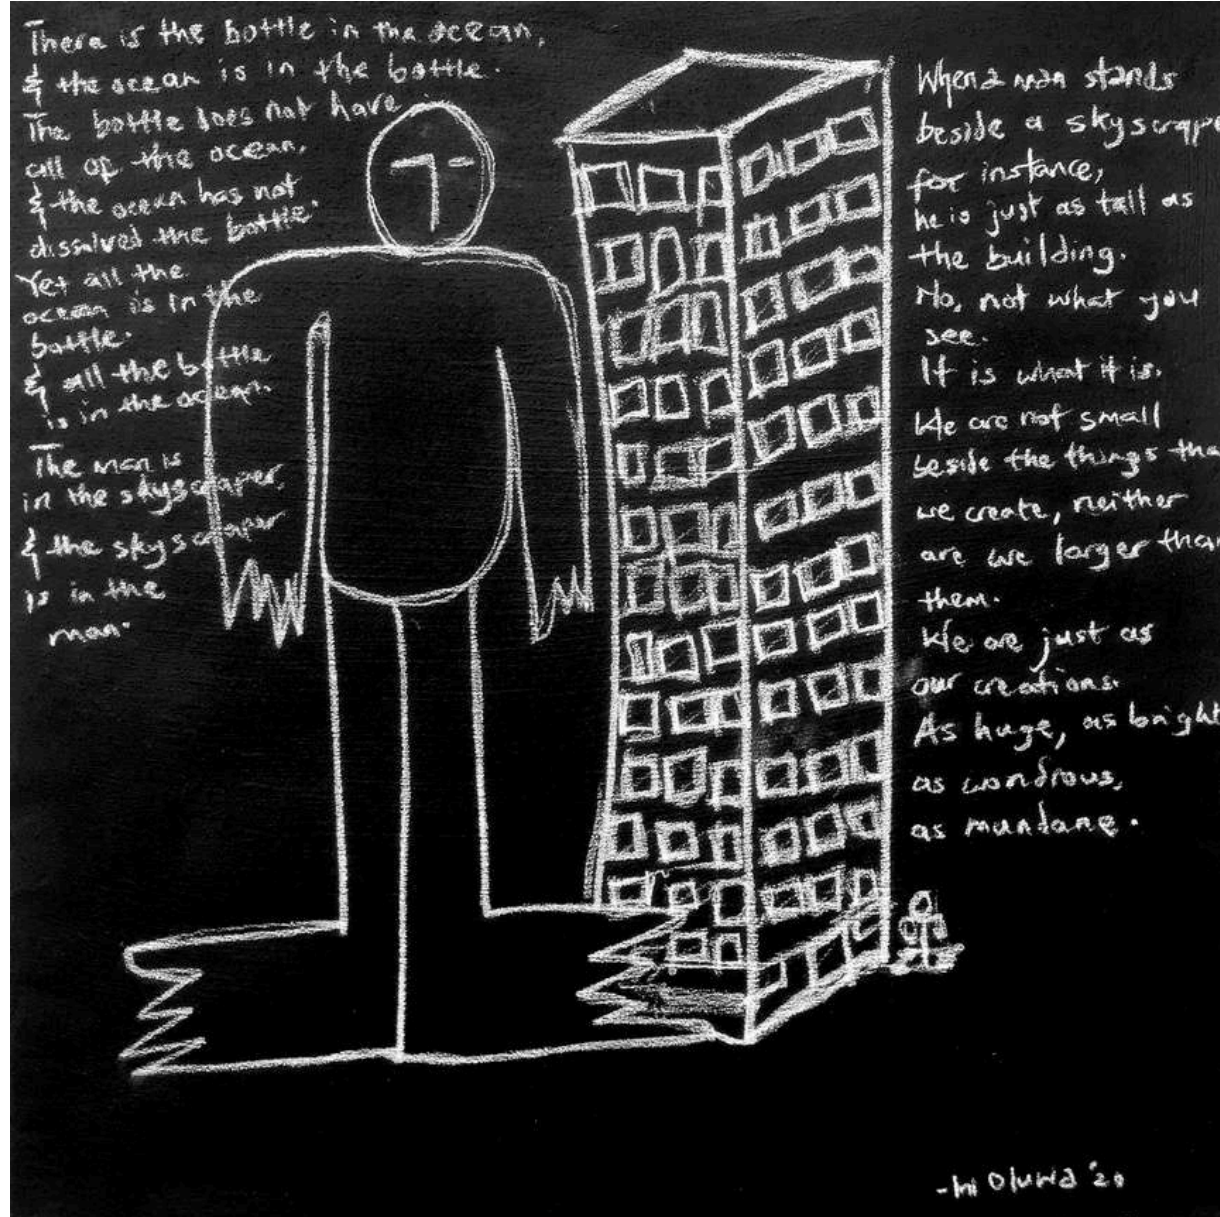 There is the bottle in the ocean,
& the ocean is in the bottle.
The bottle does not have
all of the ocean,
& the ocean has not
dissolved the bottle.
Yet all the
ocean is in the
bottle.
& all the bottle
is in the ocean.
The man is
in the skyscraper,
& the skyscraper
is in the
man.
When a man stands
beside a skyscrape
for instance,
he is just as tall as
the building.
No, not what you
see.
It is what it is.
We are not small
beside the things tha
we create, neither
are we larger than
them.
We are just as
our creations.
As huge, as bright
as wondrous,
as mundane.
- Oluwa '20